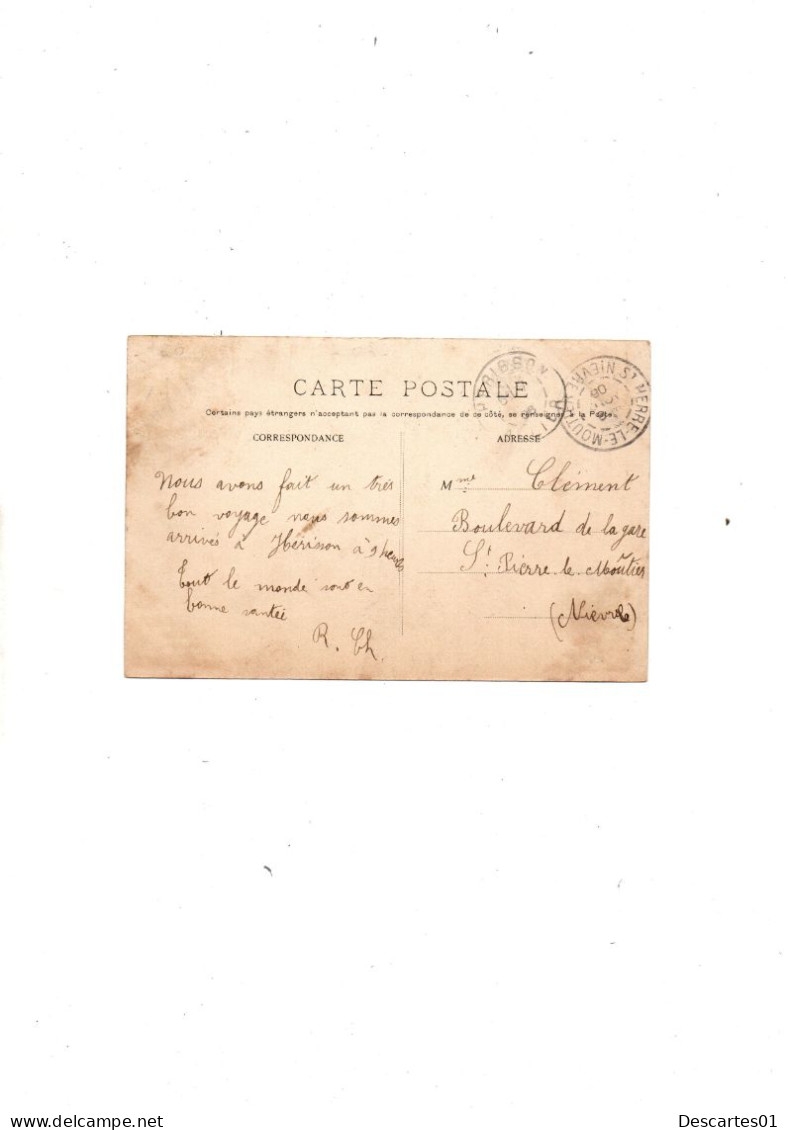 CARTE POSTALE
Certains pays étrangers n'acceptant pas la correspondance de ce côté, se renseigner à la Poste.
CORRESPONDANCE
Nous avons fait un très
bon voyage nous sommes
arrivés à Hérisson à 9 heures
Tout le monde sont en
bonne santée
R. Ch.
ADRESSE
Mme Clément
Boulevard de la gare
St. Pierre le Moûtier
(Nièvre)
ST PIERRE-LE-MOUTIER NIEVRE
Descartes01